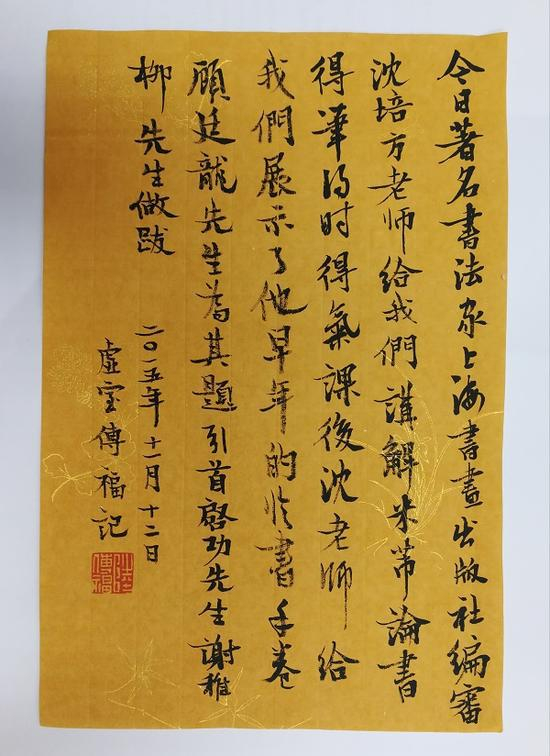 今日著名書法家上海書畫出版社編審
沈培方老师给我們講解米芾論書
得筆得时得氣課後沈老師给
我們展示了他早年的临書手卷
顾廷龍先生為其題引首啓功先生謝稚
柳先生做跋
二〇一五年十一月十二日
虚室傳福記